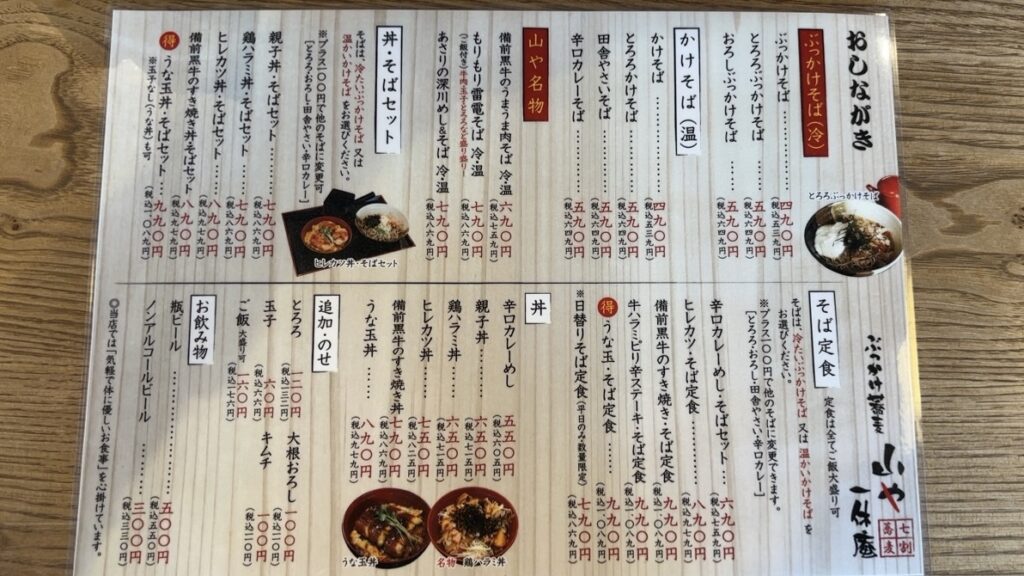 おしながき
ぶっかけそば(冷)
ぶっかけそば………四九〇円
(税込五三九円)
とろろぶっかけそば……五九〇円
(税込六四九円)
おろしぶっかけそば……五九〇円
(税込六四九円)
とろろぶっかけそば
かけそば(温)
かけそば…………四九〇円
(税込五三九円)
とろろかけそば………五九〇円
(税込六四九円)
田舎やさいそば………五九〇円
(税込六四九円)
辛口カレーそば………五九〇円
(税込六四九円)
山や名物
備前黒牛のうまうま肉そば 冷・温 六九〇円
(税込七五九円)
もりもり雷電そば 冷・温 七九〇円
(税込八六九円)
(ご飯付き)牛肉・玉子・とろろなど盛り盛り
あさりの深川めし&そば 冷・温 七九〇円
(税込八六九円)
丼・そばセット
そばは、冷たいぶっかけそば 又は
温かいかけそば をお選びください。
※プラス一〇〇円で他のそばに変更可
[とろろ・おろし・田舎やさい・辛口カレー]
ヒレカツ丼・そばセット
親子丼・そばセット………七九〇円
(税込八六九円)
鶏ハラミ丼・そばセット……七九〇円
(税込八六九円)
ヒレカツ丼・そばセット……八九〇円
(税込九七九円)
備前黒牛のすき焼き丼・そばセット 八九〇円
(税込九七九円)
得 うな玉丼・そばセット……九九〇円
(税込一〇八九円)
※玉子なし(うな丼)も可
ぶっかけ蕎麦 山や 一休庵
七割蕎麦
そば定食
定食は全てご飯大盛り可
そばは、冷たいぶっかけそば 又は 温かいかけそば を
お選びください。
※プラス一〇〇円で他のそばに変更できます。
[とろろ・おろし・田舎やさい・辛口カレー]
辛口カレーめし・そばセット……六九〇円
(税込七五九円)
ヒレカツ・そば定食………八九〇円
(税込九七九円)
備前黒牛のすき焼き・そば定食 九九〇円
(税込一〇八九円)
牛ハラミピリ辛ステーキ・そば定食 九九〇円
(税込一〇八九円)
得 うな玉・そば定食………九九〇円
(税込一〇八九円)
※日替りそば定食(平日のみ数量限定) 七九〇円
(税込八六九円)
丼
辛口カレーめし………五五〇円
(税込六〇五円)
親子丼…………六五〇円
(税込七一五円)
鶏ハラミ丼………六五〇円
(税込七一五円)
ヒレカツ丼………七五〇円
(税込八二五円)
備前黒牛のすき焼き丼 七九〇円
(税込八六九円)
うな玉丼…………八九〇円
(税込九七九円)
名物 鶏ハラミ丼
うな玉丼
追加・のせ
とろろ 一二〇円
(税込一三二円)
大根おろし 一〇〇円
(税込一一〇円)
玉子 六〇円
(税込六六円)
キムチ 一〇〇円
(税込一一〇円)
ご飯 大盛り可 一六〇円
(税込一七六円)
お飲み物
瓶ビール………五〇〇円
(税込五五〇円)
ノンアルコールビール………三〇〇円
(税込三三〇円)
◎当店では「気軽で体に優しいお食事」を心掛けています。